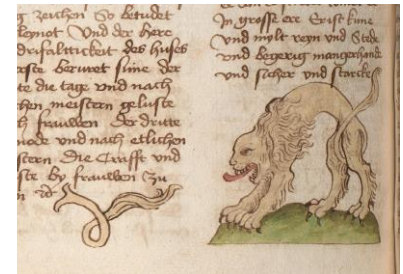 zeichen So betudet
kleynot Vnd der here
drifalttickeit des huses
erste beruret sine der
te die tage vnd nach
hen meistern geluste
h frauwen der dritte
mode vnd nach etlichen
stern Die Crafft vnd
ste by frauwen Czu
In grosse ere Er ist kune
vnd mylt reyn vnd Stede
vnd begerig mangerhande
vnd sicher vnd starcke